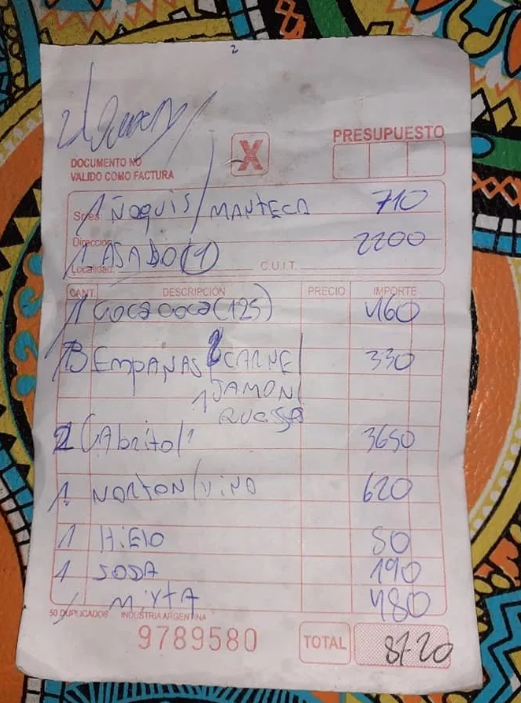 2
PRESUPUESTO
X
DOCUMENTO NO
VALIDO COMO FACTURA
Sres.
1 Ñoquis/MANTECA 710
Dirección
1 ASADO(1) 2200
Localidad C.U.I.T.
CANT. DESCRIPCIÓN PRECIO IMPORTE
1 COCA COCA (125) 460
3 EMPANAS 2 CARNE/ 330
1 JAMON/
QUESSO
2 CAbrito/1 3650
1 NORTON/VINO 620
1 HiElO 80
1 SODA 190
1 MiXTA 480
50 DUPLICADOS INDUSTRIA ARGENTINA
9789580
TOTAL 8720